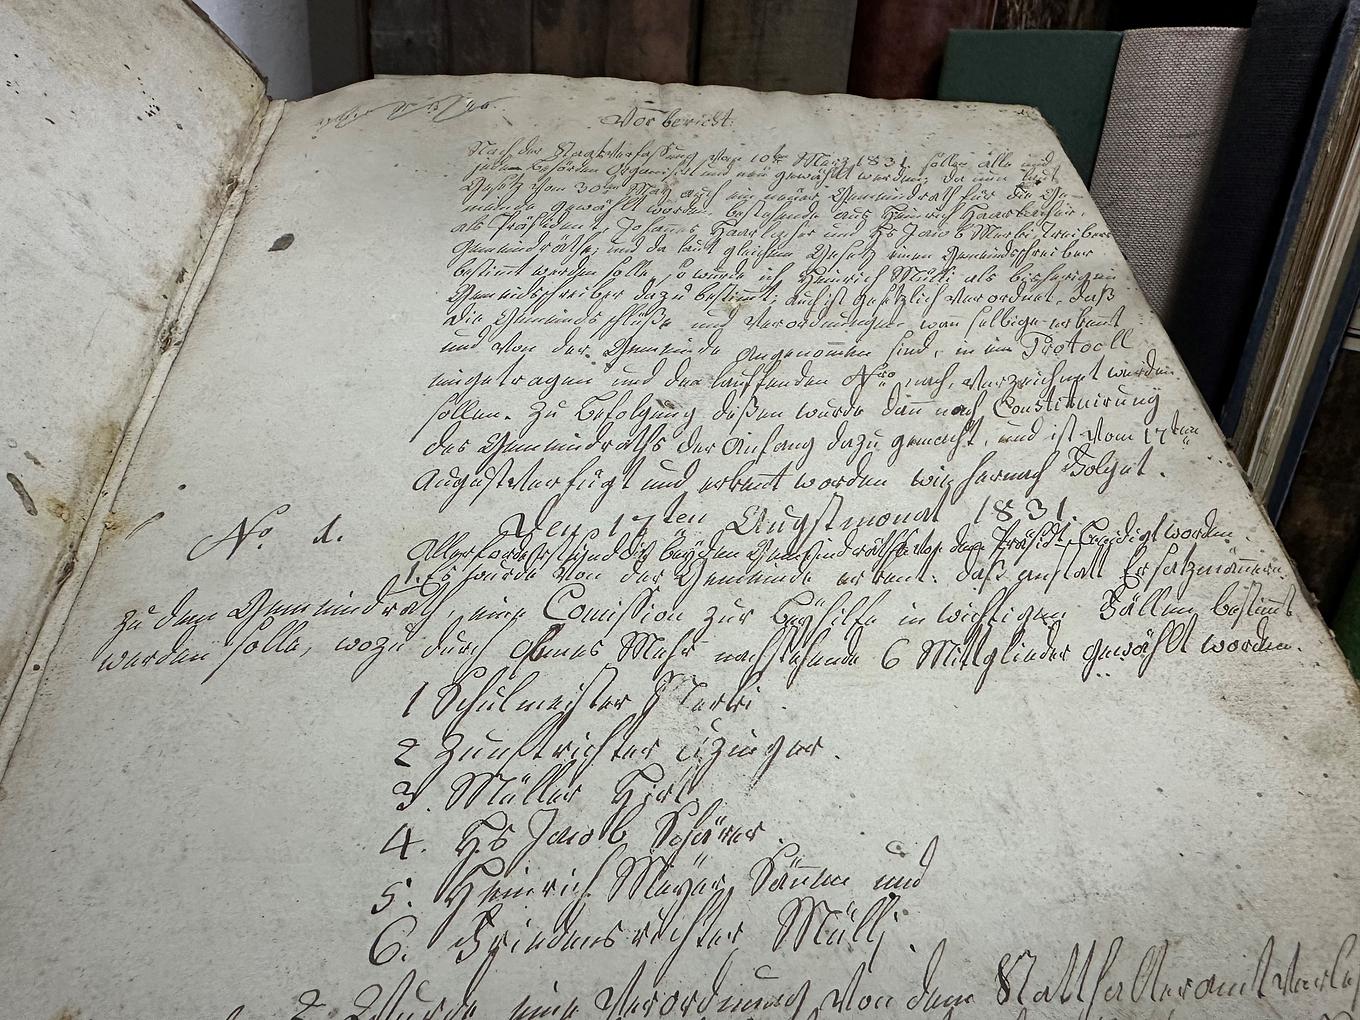 Vorbericht.
Nach der Staatsverfassung vom 10ten März 1831. sollen alle und
jeden Behörden Organisirt und neu gewählt werden, da nun laut
Gesetz vom 30ten May auch ein neuer Gemeindrath für die Ge-
meinde gewählt worden, bestehende aus Heinrich
als Präsident, Johannes und Hs Jacob Merki, Treiber
Gemeindräthe, und da laut gleichem Gesetz einen Gemeindschreiber
bestimt werden solle, so wurde ich Heinrich Mülli als bisherigen
Gemeindschreiber dazu bestimt; auch ist Gesetzlich verordnet, daß
die Gemeindsschlüße und Verordnungen wan selbige erkennt
und von der Gemeinde angenomen sind, in ein Protocoll
eingetragen und den lauffenden Nro nach, verzeichnet werden
sollen. Zu Befolgung deßen wurde dan nach Constituirung
des Gemeindraths der Anfang dazu gemacht, und ist vom 17ten
August verfügt und erkent worden wie hernach Folget.
Den 17ten Augstmonat 1831.
No. 1.
Allervorderst sind die beyden Gemeindräthe von dem Präsidt beeidigt worden.
1. Es wurde von der Gemeinde erkent: daß anstatt Ersatzmännern
zu dem Gemeindrath, eine Comission zur Beyhilfe in wichtigen Fällen bestimt
werden solle, wozu durch offenes Mehr nachstehende 6 Mitglieder gewählt worden.
1 Schulmeister Merki
2 Zunftrichter Uzinger.
3. Müller Hirt
4. Hs Jacob Schärer.
5. Heinrich Meyer, und
6. Friedensrichter Mülli.
2. Wurde eine Verordnung von dem Statthalteramt